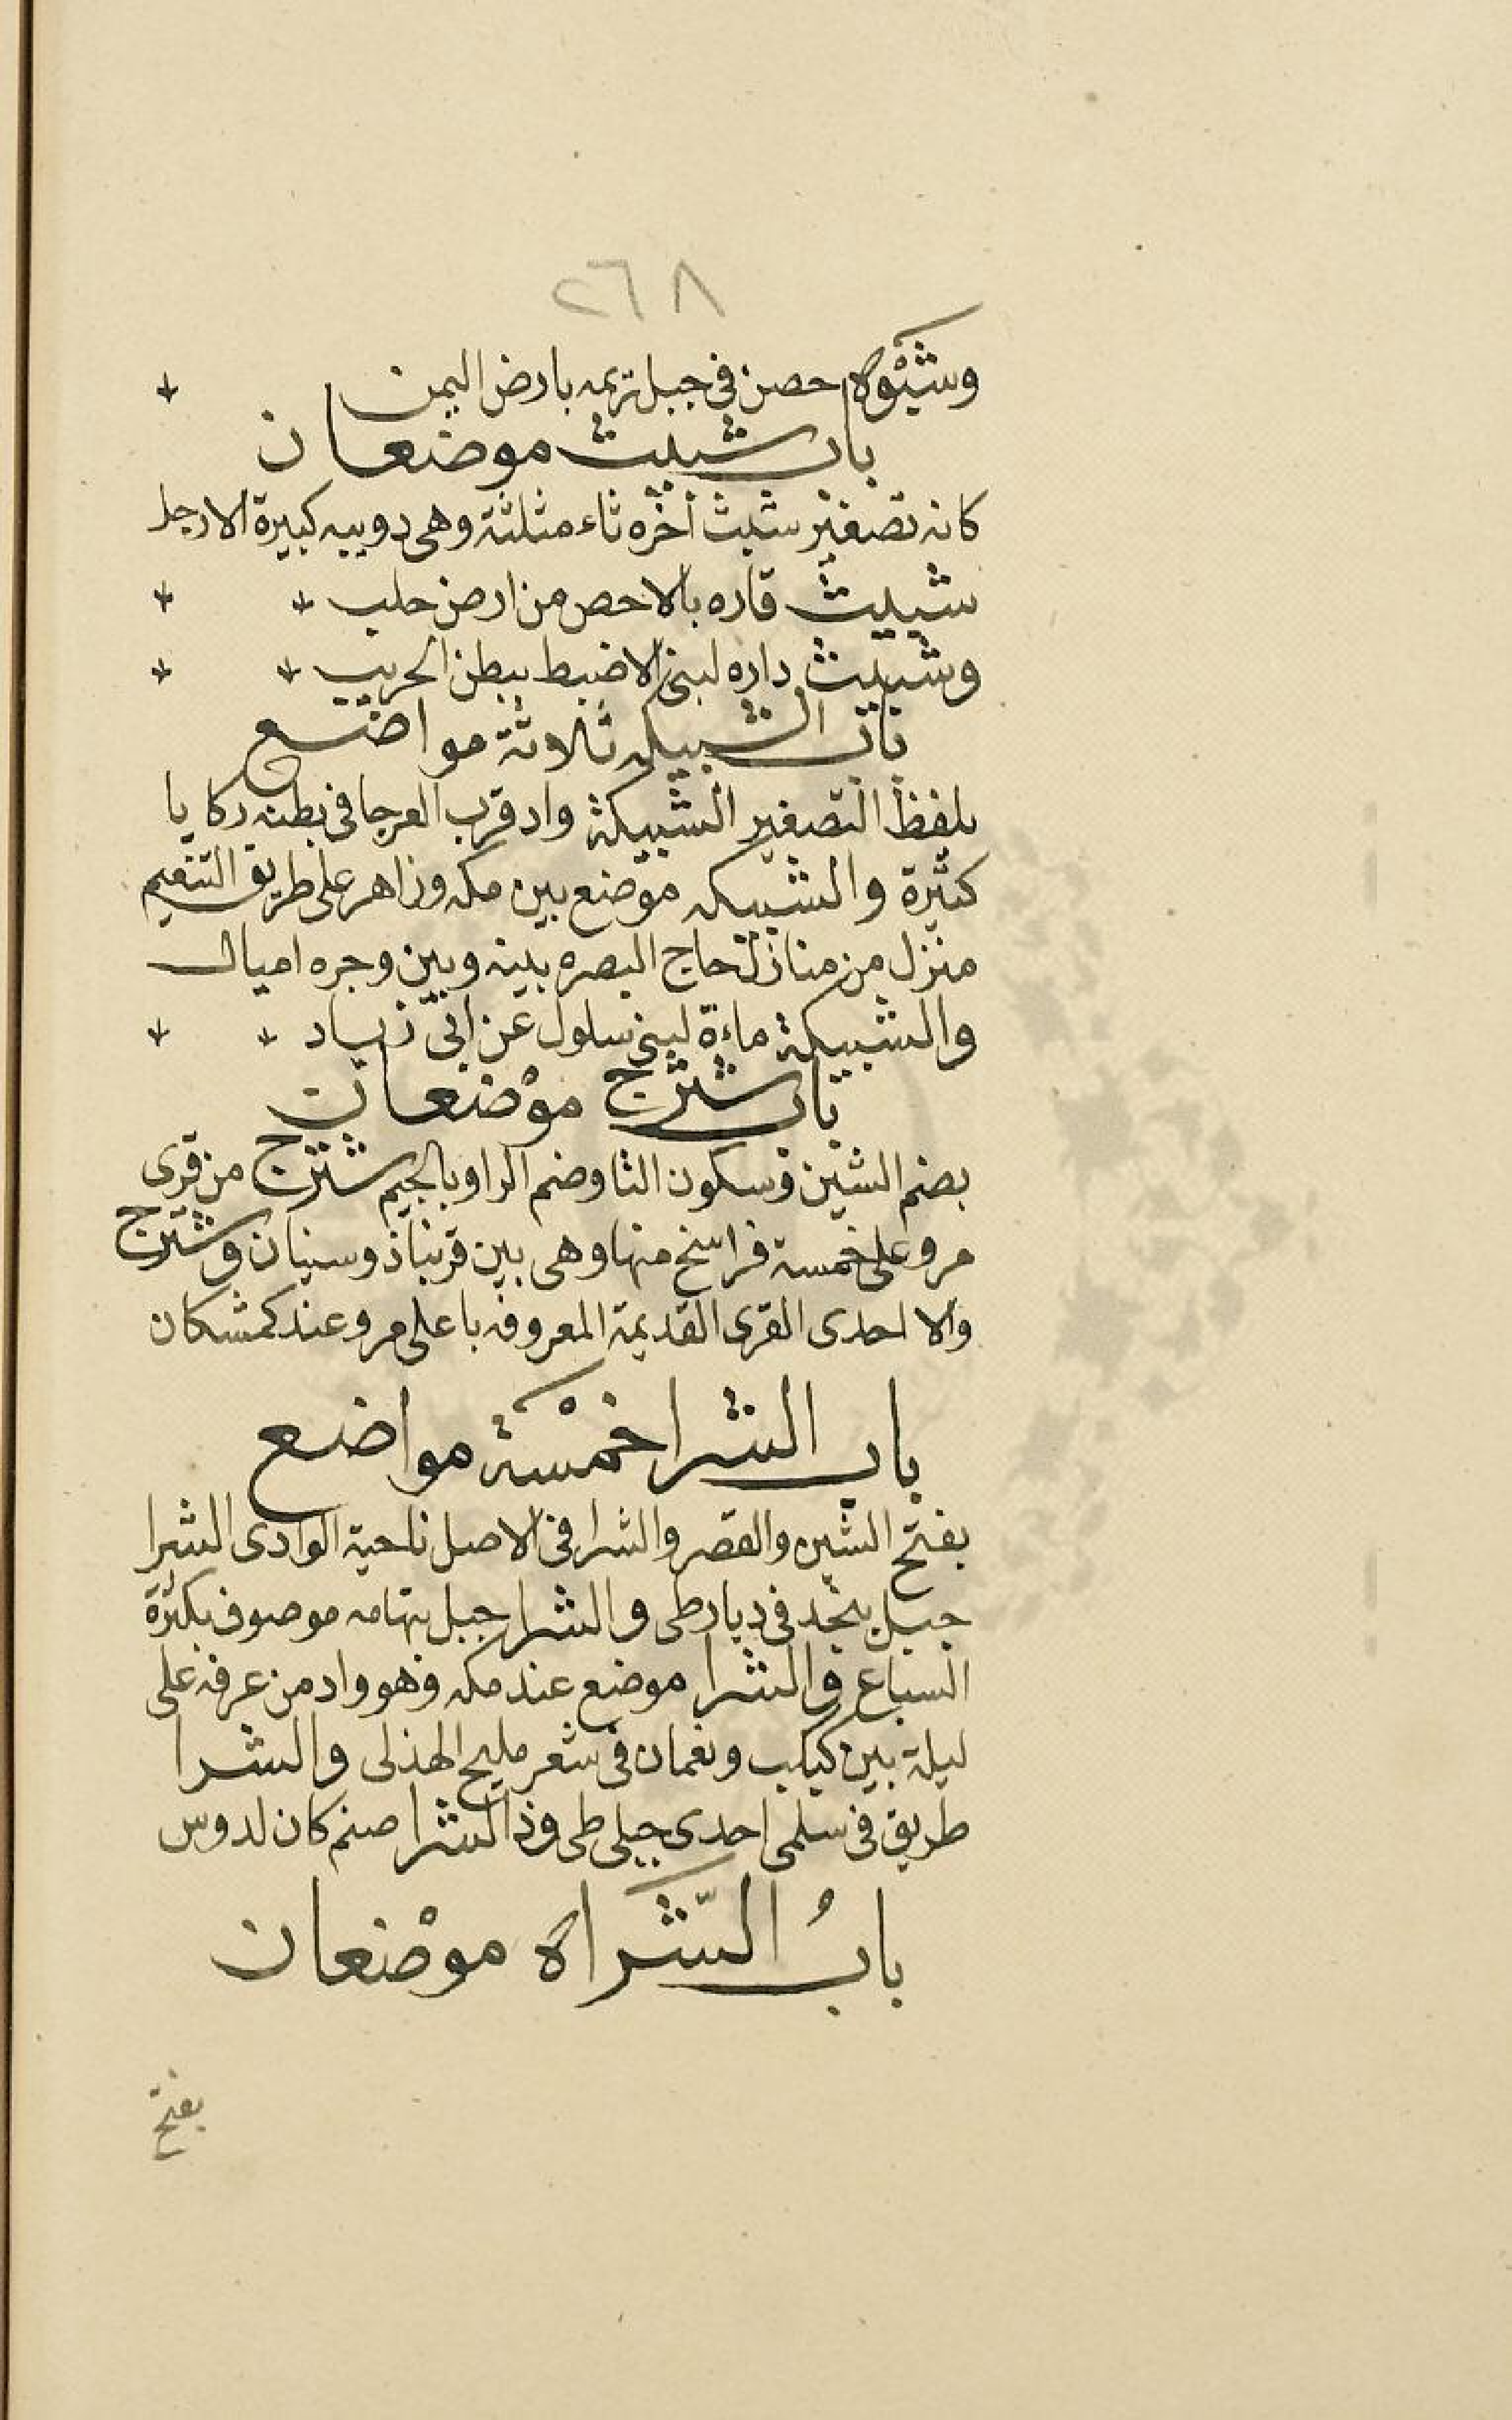 ٢٦٨
وشبوه حصن فى جبل تريمه بارض اليمن
باب شبيث موضعان
كانه تصغير شبث آخره ثاء مثلثة وهى دويبه كبيرة الارجل
شبيث قاره بالاحص من ارض حلب
وشبيث داره لبنى الاضبط ببطن الحريب
باب الشبيكه ثلاثة مواضع
بلفظ التصغير الشبيكة واد قرب العرجا فى بطنه ركايا
كثيرة والشبيكه موضع بين مكه وزاهر على طريق التنعيم
منزل من منازل حاج البصره بينه وبين وجره اميال
والشبيكة ماءة لبنى سلول عن ابى زياد
باب شترج موضعان
بضم الشين وسكون التا وضم الرا وبالجيم شترج من قرى
مرو على خمسة فراسخ منها وهى بين قريناذ وسينان وشترج
والا احدى القرى القديمة المعروفه باعلى مرو عند كمشكان
باب الشرا خمسة مواضع
بفتح الشين والقصر والشرا فى الاصل ناحية الوادى الشرا
جبل بنجد فى ديار طى والشرا جبل بتهامه موصوف بكثرة
السباع والشرا موضع عند مكه وهو واد من عرفه على
ليلة بين كبكب ونعمان فى شعر مليح الهذلى والشرا
طريق فى سلمى احدى جبلى طى وذا الشرا صنم كان لدوس
بابُ الشّراه موضعان
بفتح